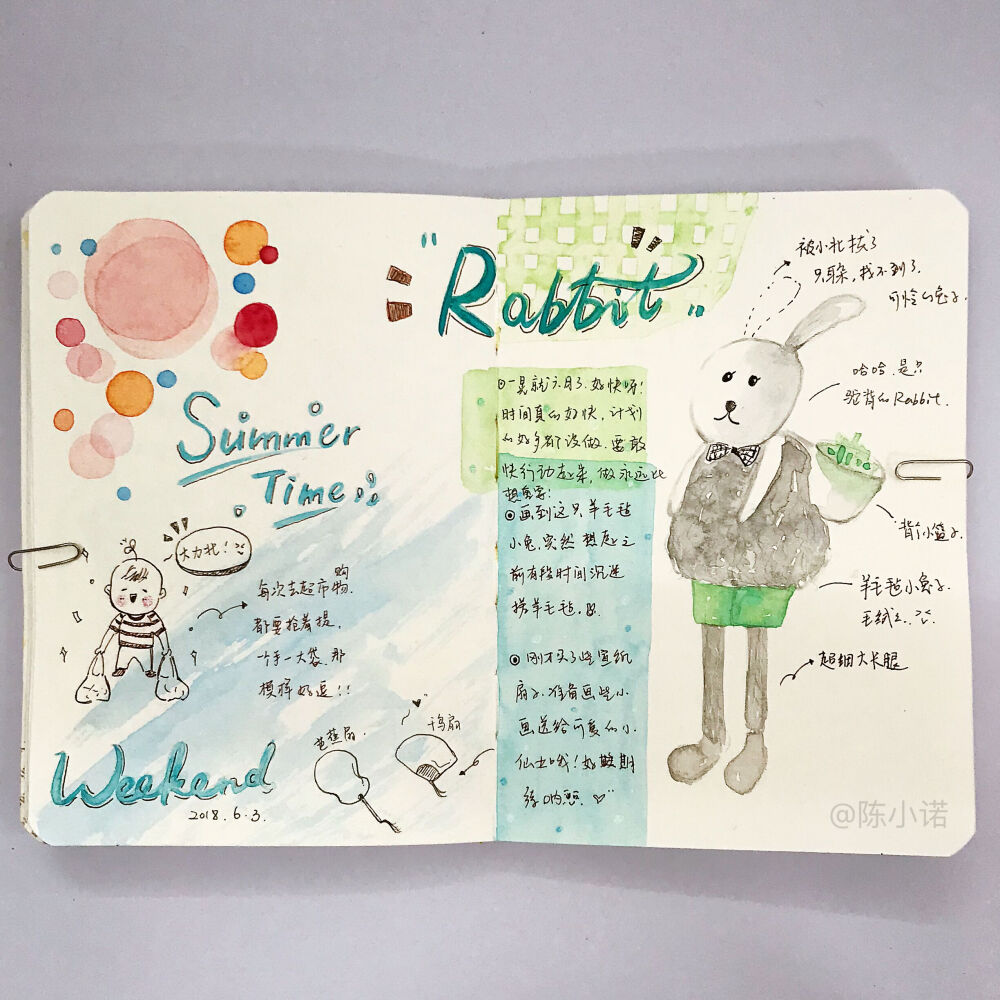 Summer
Time
大力北!
每次去超市购物.
都要抢着提,
一手一大袋,那
模样好逗!!
Weekend
2018.6.3.
芭蕉扇.
"Rabbit"
⊙一晃就六月了.好快呀!
时间真的好快,计划
的好多都没做.要敢
快行动起来,做永远比
想重要!
⊙画到这只羊毛毡
小兔,突然想起之
前有段时间沉迷
搓羊毛毡.
⊙刚才买了些宣纸
扇子.准备画些小
画送给可爱的小
仙女哦!好期
待哟
被小北拔了
只耳朵,找不到了.
可怜的兔子.
哈哈.是只
驼背的Rabbit.
背个小篮子.
羊毛毡小兔子.
毛绒
超细大长腿
@陈小诺